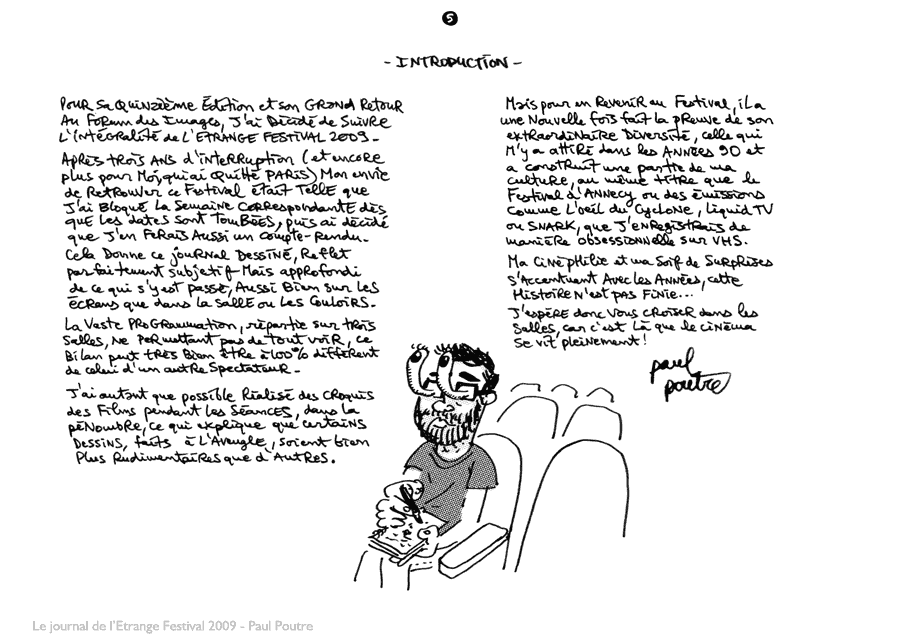 5
- INTRODUCTION -
Pour sa quinzième Édition et son GRAND RETOUR
Au Forum des Images, j'ai décidé de suivre
l'intégralité de L'ETRANGE FESTIVAL 2009.
Après trois ans d'interruption (et encore
plus pour moi, qui ai quitté PARIS) mon envie
de retrouver ce Festival était telle que
j'ai bloqué la semaine correspondante dès
que les dates sont tombées, puis ai décidé
que j'en ferais aussi un compte-rendu.
Cela donne ce journal dessiné, reflet
parfaitement subjectif mais approfondi
de ce qui s'y est passé, aussi bien sur les
écrans que dans la salle ou les couloirs.
La vaste programmation, répartie sur trois
salles, ne permettant pas de tout voir, ce
bilan peut très bien être à 100% différent
de celui d'un autre spectateur.
J'ai autant que possible réalisé des croquis
des films pendant les séances, dans la
pénombre, ce qui explique que certains
dessins, faits à l'aveugle, soient bien
plus rudimentaires que d'autres.
Mais pour en revenir au Festival, il a
une nouvelle fois fait la preuve de son
extraordinaire diversité, celle qui
m'y a attiré dans les ANNÉES 90 et
a construit une partie de ma
culture, au même titre que le
Festival d'ANNECY ou des émissions
comme L'oeil du Cyclone, Liquid TV
ou SNARK, que j'enregistrais de
manière obsessionnelle sur VHS.
Ma cinéphilie et ma soif de surprises
s'accentuant avec les années, cette
histoire n'est pas finie...
J'espère donc vous croiser dans les
salles, car c'est là que le cinéma
se vit pleinement !
paul
poutre
Le journal de l'Etrange Festival 2009 - Paul Poutre